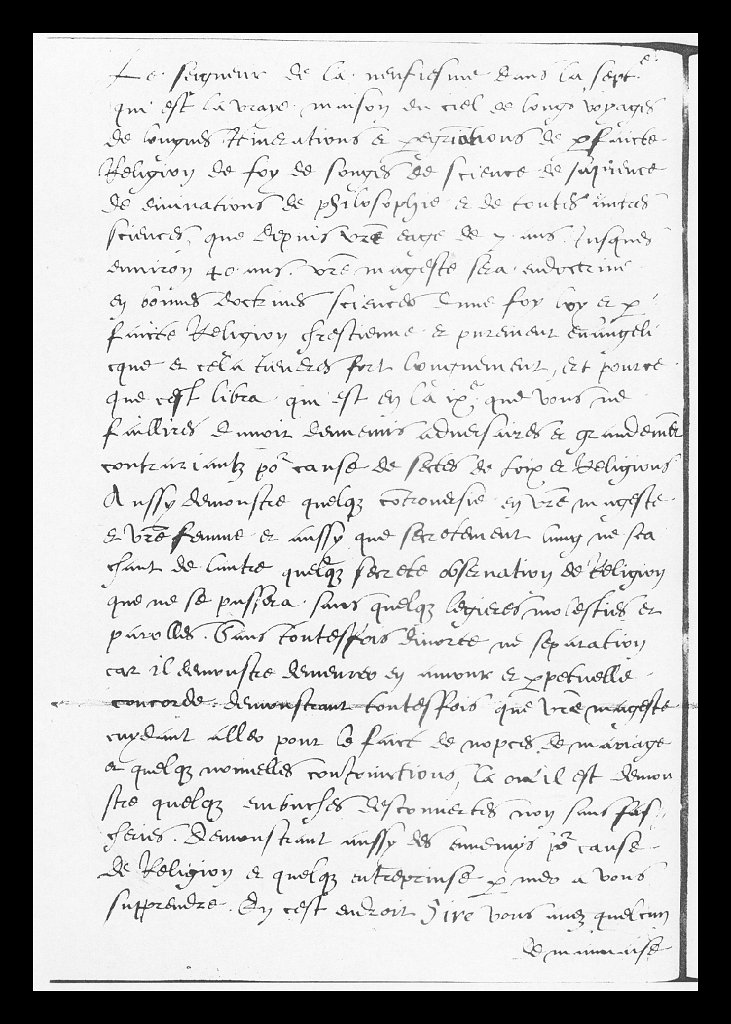 Le seigneur de la neufiesme dans la septe
qui est la vraye maison du ciel de longs voyages
de longues Itinerations et peregrinations de p faicte
Religion de foy de songes de science de sapience
de divinations de philosophie et de toutes
sciences que depuis vre eage de 7 ans Jusques
environ 40 ans. vre mageste sera endoctrine
en bonnes doctrines sciences dune foy loy et p
faicte Religion chrestienne et purement evangeli
cque et cela tiendres fort longuement, et pource
que cest libra qui est en la ixe que vous ne
faillires davoir dennemis adversaires et grandemet
contrariantz po cause de sectes de loix et Religions
Aussy demonstre quelq controversie en vre mageste
et vre femme et aussy que secretement lung ne sca
chant de lautre quelq secrete observation de Religion
que ne se passera sans quelq legieres molesties et
parolles. Sans toutesfois divorce ne separation
car il demonstre demeurer en amour et ppetuelle
concorde. demonstrant toutesfois que vre mageste
cuydant aller pour le faict de nopces de mariage
et quelq nouvelles conjoinctions, la ou il est demon
stre quelq embusches descouvertes non sans fas-
cheries. Demonstrant aussy des ennemys po cause
de Religion et quelq entreprinse p mer a vous
supprendre. En cest endroit Sire vous avez quelcun
de mauvaise